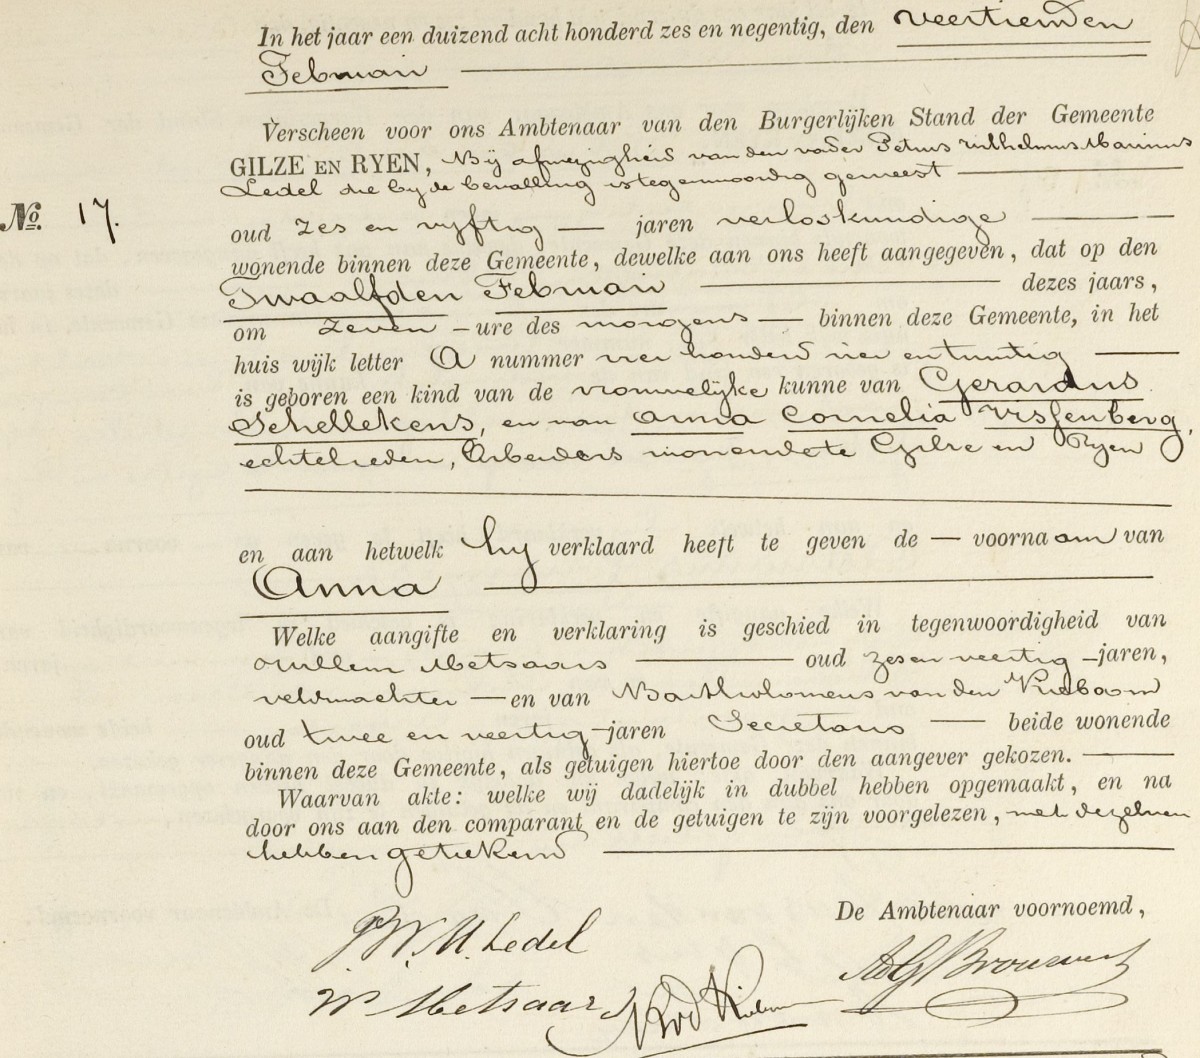 In het jaar een duizend acht honderd zes en negentig, den veertienden
Februari
Verscheen voor ons Ambtenaar van den Burgerlijken Stand der Gemeente
GILZE EN RYEN, Bij afwezigheid van den vader Petrus Wilhelmus Marinus
Ledel die by de bevalling is tegenwoordig geweest
No. 17.
oud zes en vyftig jaren verloskundige
wonende binnen deze Gemeente, dewelke aan ons heeft aangegeven, dat op den
Twaalfden Februari dezes jaars,
om zeven ure des morgens binnen deze Gemeente, in het
huis wijk letter A nummer vier honderd vier en twintig
is geboren een kind van de vrouwelyke kunne van Gerardus
Schellekens, en van Anna Cornelia Vissenberg,
echtelieden, Arbeiders wonende te Gilze en Ryen
en aan hetwelk hy verklaard heeft te geven de voornaam van
Anna
Welke aangifte en verklaring is geschied in tegenwoordigheid van
Willem Metsaars oud zes en veertig jaren,
veldwachter en van Bartholomeus van den Kieboom
oud twee en veertig jaren Secretaris beide wonende
binnen deze Gemeente, als getuigen hiertoe door den aangever gekozen.
Waarvan akte: welke wij dadelijk in dubbel hebben opgemaakt, en na
door ons aan den comparant en de getuigen te zijn voorgelezen, met dezelven
hebben getekend
De Ambtenaar voornoemd,
P.W.M. Ledel
W Metsaars